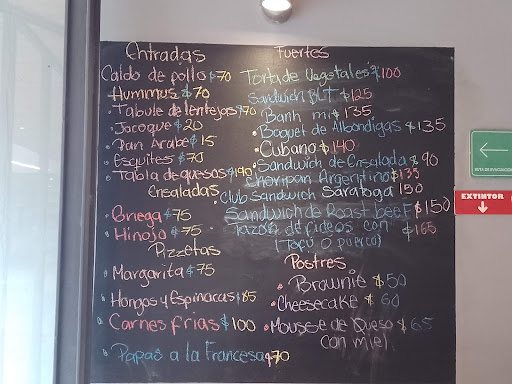 Entradas
Caldo de pollo $70
Hummus $70
Tabule de lentejas $70
Jocoque $20
Pan Arabe $15
Esquites $70
Tabla de quesos $190
Ensaladas
Griega $75
Hinojo $75
Pizzetas
Margarita $75
Hongos y Espinacas $85
Carnes frias $100
Papas a la Francesa $70
Fuertes
Torta de Vegetales $100
Sandwich BLT $125
Banh mi $135
Baguet de Albóndigas $135
Cubano $140
Sandwich de Ensalada $90
Choripan Argentino $135
Club Sandwich Saratoga 150
Sandwich de Roast beef $150
Tazón de fideos con $165
(Tofu o puerco)
Postres
Brownie $50
Cheesecake $60
Mousse de Queso $65
con miel
RUTA DE EVACUACIÓN
EXTINTOR